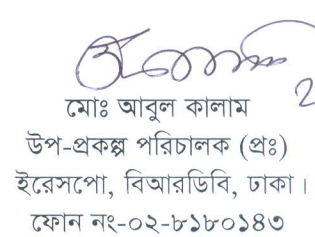 মোঃ আবুল কালাম
উপ-প্রকল্প পরিচালক (প্রঃ)
ইরেসপো, বিআরডিবি, ঢাকা।
ফোন নং-০২-৮১৮০১৪৩